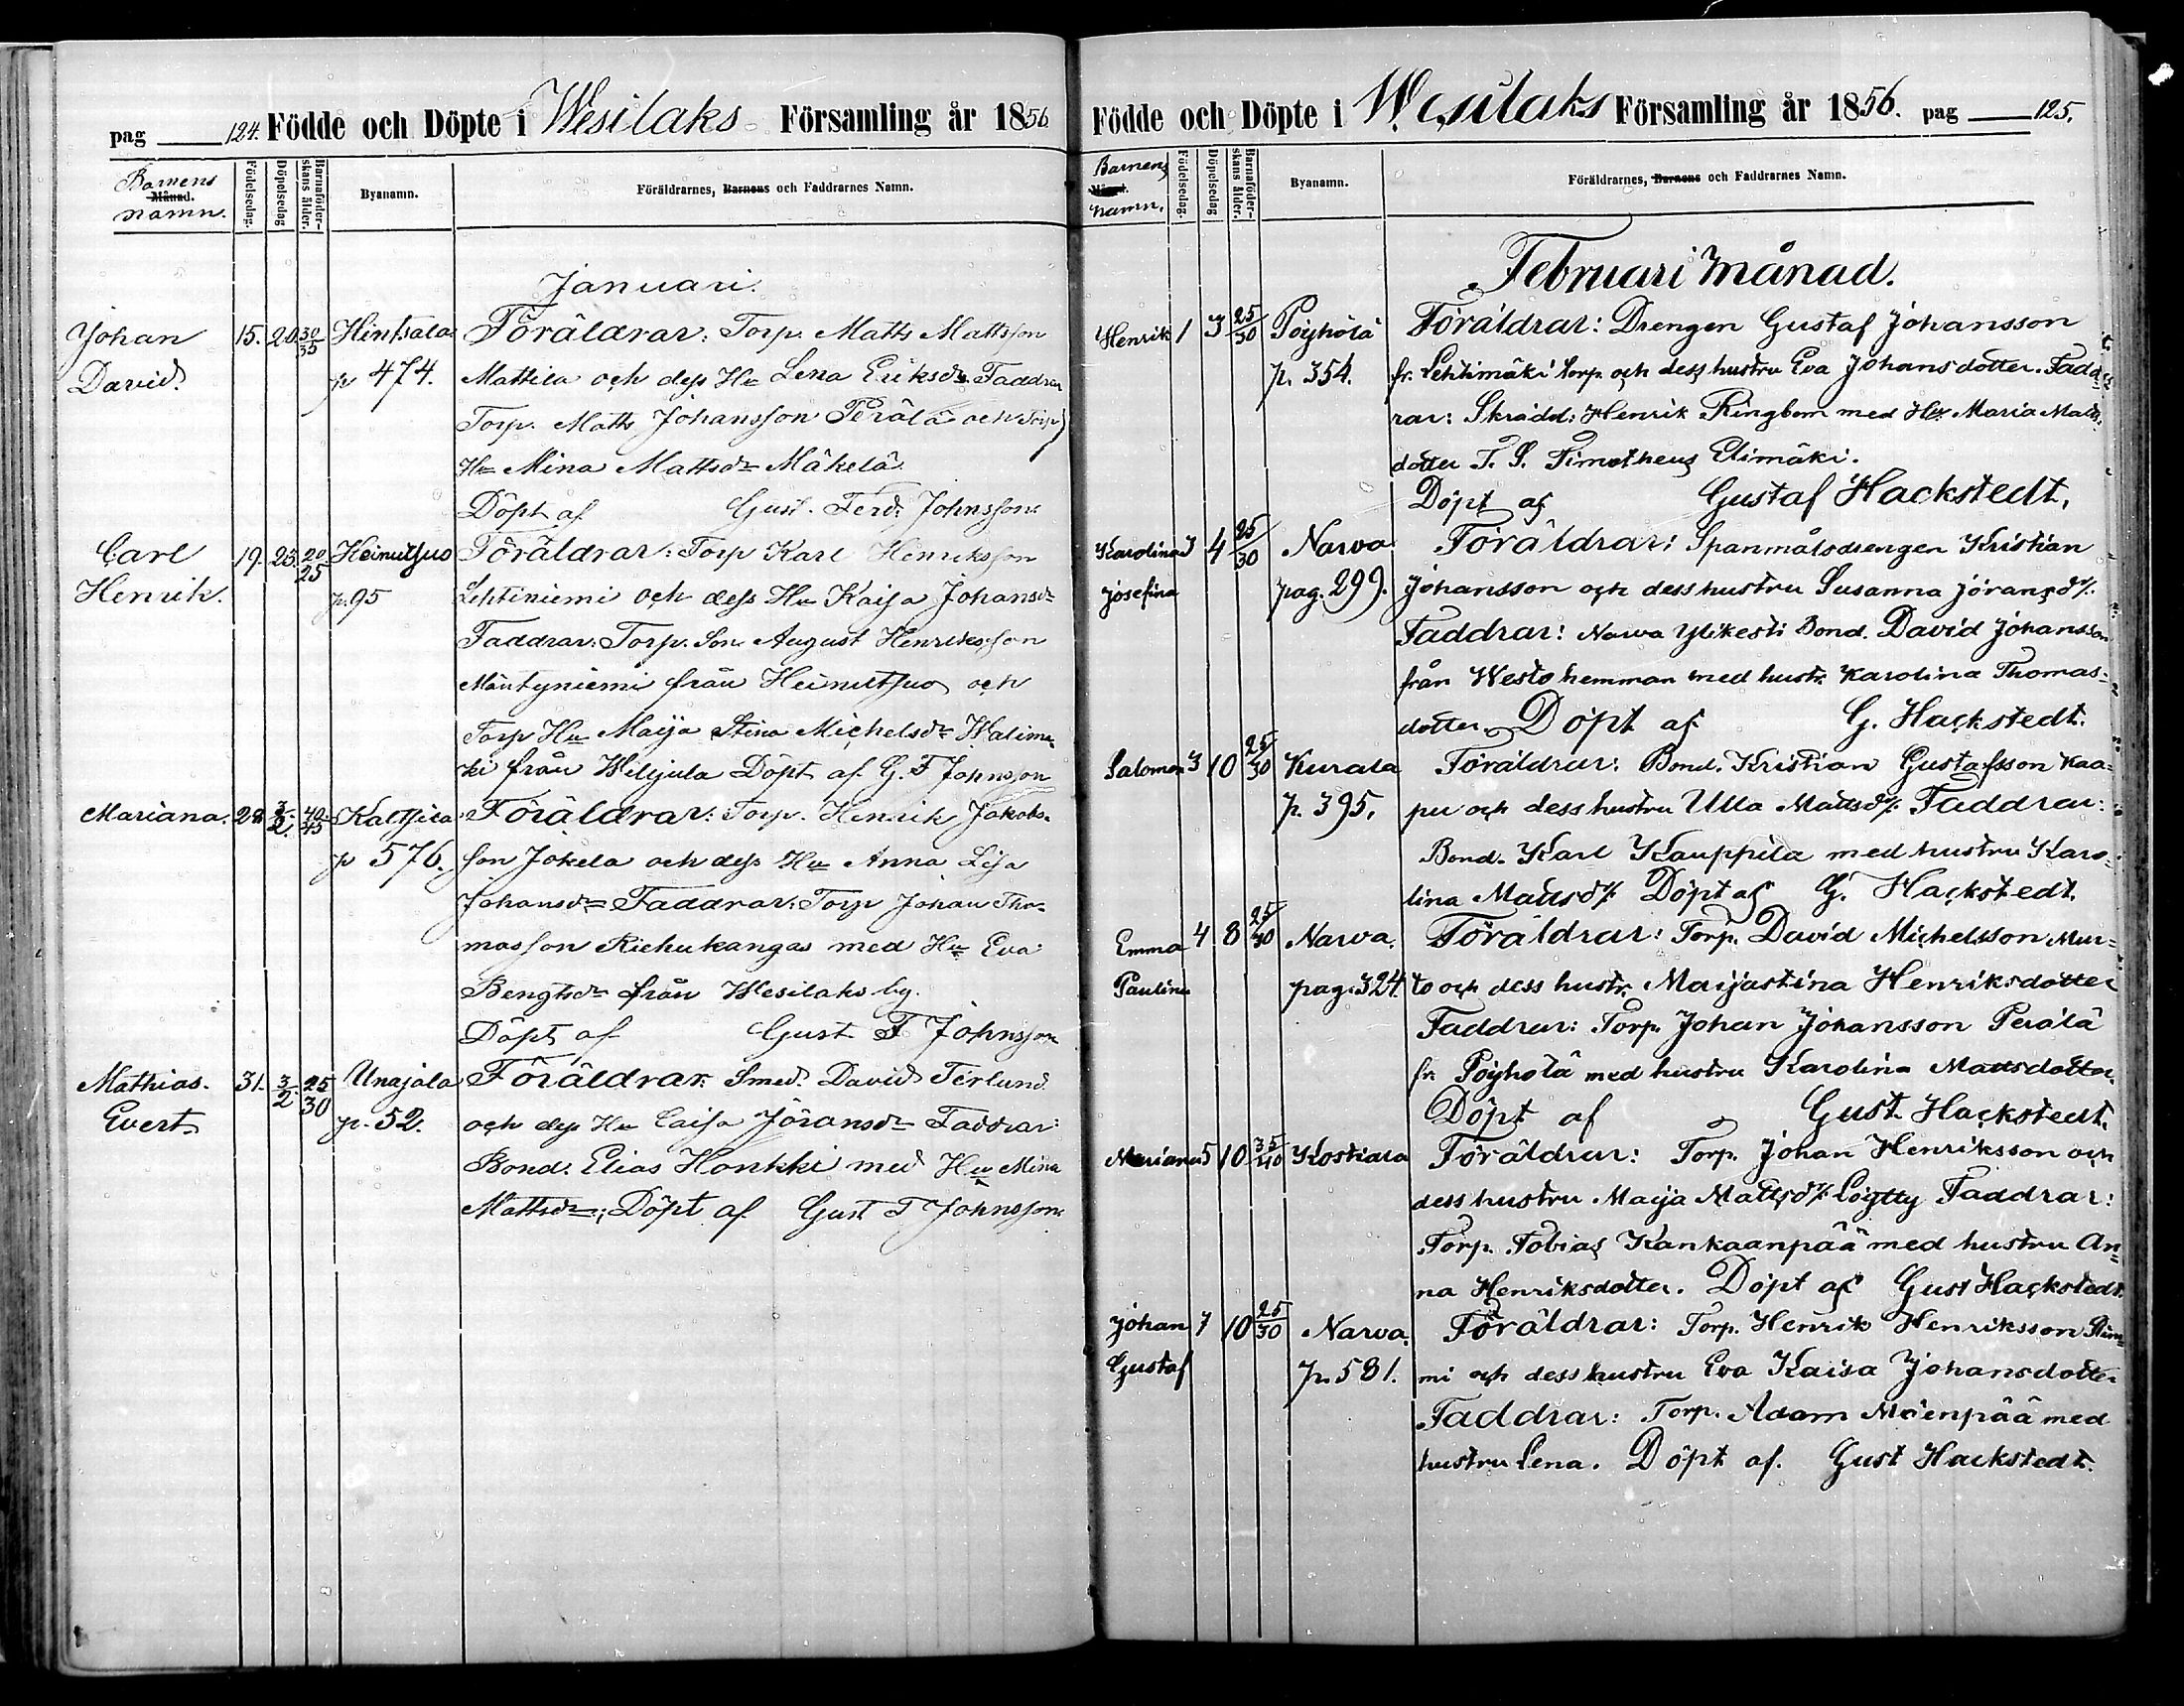 pag 124. Födde och Döpte i Wesilaks Församling år 1856
Barnens
Månad.
namn.
Födelsedag.
Döpelsedag
Barnaföder-
skans ålder.
Byanamn.
Föräldrarnes, Barnens och Faddrarnes Namn.
Januari.
Johan 15. 20. 30/35 Hintsala Föräldrar: Torp. Matts Mattsson
David. p 474. Mattila och dess Hu Lena Eriksdr Faddrar
Torp. Matts Johansson Perälä och Torp
Hu Mina Mattsdr Mäkelä.
Döpt af Gust. Ferd. Johnsson
Carl 19. 25. 20/25 Heinutsuo Föräldrar: Torp Karl Henriksson
Henrik. p. 95 Lehtiniemi och dess Hu Kaisa Johansdr
Faddrar: Torp. Son August Henriksson
Mäntyniemi från Heinutsuo och
Torp Hu Maija Stina Michelsdr Walimä
ki från Hiljula Döpt af G. F Johnsson
Mariana. 28 3/2 40/45 Kaltsila Föräldrar: Torp. Henrik Jakobs-
p 576. son Jokela och dess Hu Anna Lisa
Johansdr Faddrar: Torp Johan Tho-
masson Riehukangas med Hu Eva
Bengtsdr från Wesilaks by.
Döpt af Gust F Johnsson
Mathias. 31. 3/2 25/30 Unajala Föräldrar: Smed. David Terlund
Evert p. 52. och dess Hu Caisa Jöransdr Faddrar:
Bond. Elias Honkki med Hu Mina
Mattsdr; Döpt af Gust F Johnsson
Födde och Döpte i Wesilaks Församling år 1856. pag 125.
Barnens
Månad.
namn.
Födelsedag.
Döpelsedag
Barnaföder-
skans ålder.
Byanamn.
Föräldrarnes, Barnens och Faddrarnes Namn.
Februari månad.
Henrik 1 3 25/30 Pöyhölä Föräldrar: Drengen Gustaf Johansson
p. 354. fr. Lehtimäki torp och dess hustru Eva Johansdotter. Fadd-
rar: Skrädd: Henrik Ringbom med Hu Maria Matts
dotter T. S. Timotheus Elimäki.
Döpt af Gustaf Hackstedt,
Karolina 3 4 25/30 Narva Föräldrar: Spanmålsdrengen Kristian
Josefina pag. 299. Johansson och dess hustru Susanna Jöransd/r.
Faddrar: Narva Ylikesti Bond. David Johansson
från Westo hemman med hustr. Karolina Thomas-
dotter. Döpt af G. Hackstedt.
Salomon 3 10 25/30 Kurala Föräldrar: Bond. Kristian Gustafsson Kaa-
p. 395. pu och dess hustru Ulla Mattsd/r. Faddrar:
Bond. Karl Kauppila med hustru Karo-
lina Mattsd/r. Döpt af G. Hackstedt.
Emma 4 8 25/30 Narva. Föräldrar: Torp. David Michelsson Mur-
Paulina pag. 324. to och dess hustr. Maijastina Henriksdotter
Faddrar: Torp. Johan Johansson Perälä
fr. Pöyhölä med hustru Karolina Mattsdotter.
Döpt af Gust. Hackstedt.
Mariana 5 10 35/40 Kostiala Föräldrar: Torp. Johan Henriksson och
dess hustru Maija Mattsd/r. Löytty Faddrar:
Torp. Tobias Kankaanpää med hustru An-
na Henriksdotter. Döpt af Gust Hackstedt.
Johan 7 10 25/30 Narva. Föräldrar: Torp. Henrik Henriksson
Gustaf p. 581. mi och dess hustru Eva Kaisa Johansdotter
Faddrar: Torp. Adam Mäenpää med
hustru Lena. Döpt af. Gust Hackstedt.